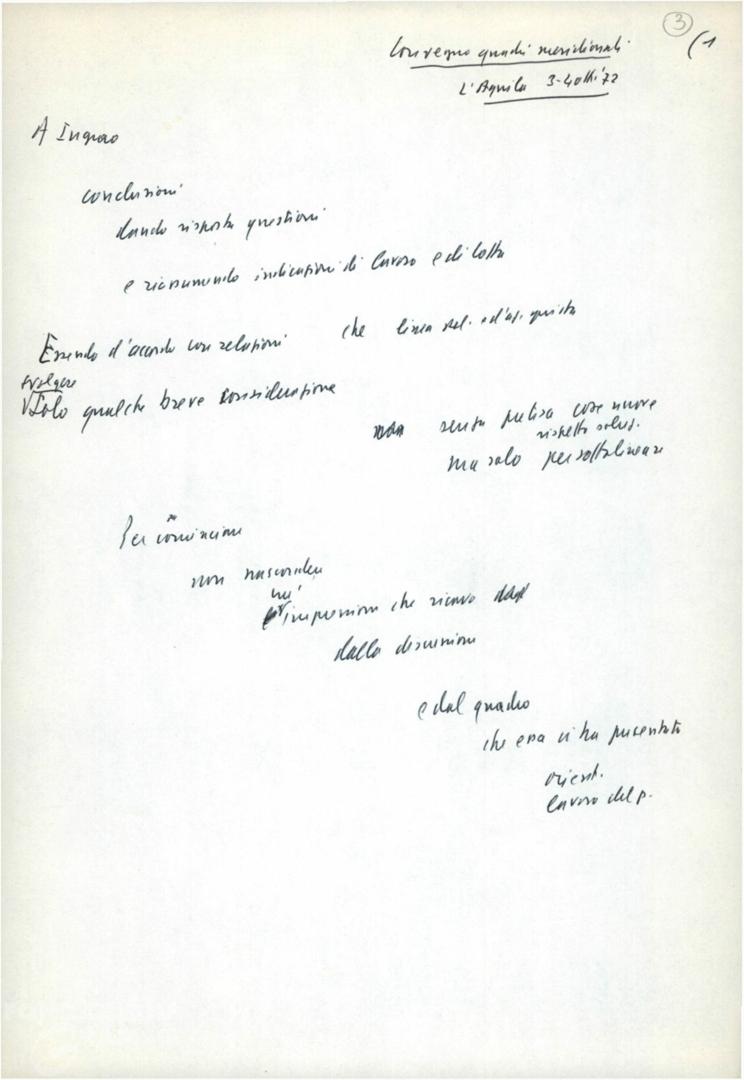 3
(1
Convegno quadri meridionali
L'Aquila 3-4 ott. '72
A Ingrao
conclusioni
dando risposta questioni
e riassumendo indicazioni di lavoro e di lotta
Essendo d'accordo con relazioni che linea
svolgere
Solo qualche breve considerazione
non senza pretesa cose nuove
rispetto
ma solo per sottolineare
Per cominciare
non nascondere
impressione che ricavo
dalla discussione
e dal quadro
che essa ci ha presentato
orient.
lavoro del p.